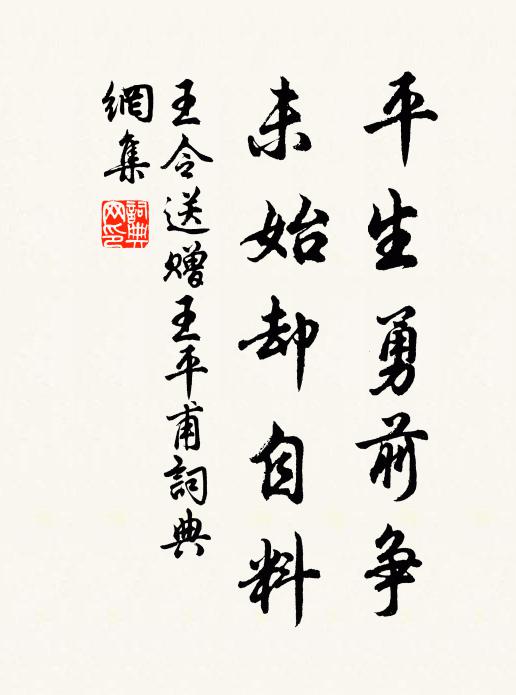 平生勇前争
未始却自料
王令送赠王平甫詞典
網集
詞典
网印